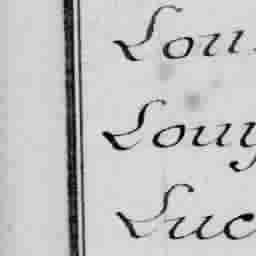 Lou
Louy
Luc